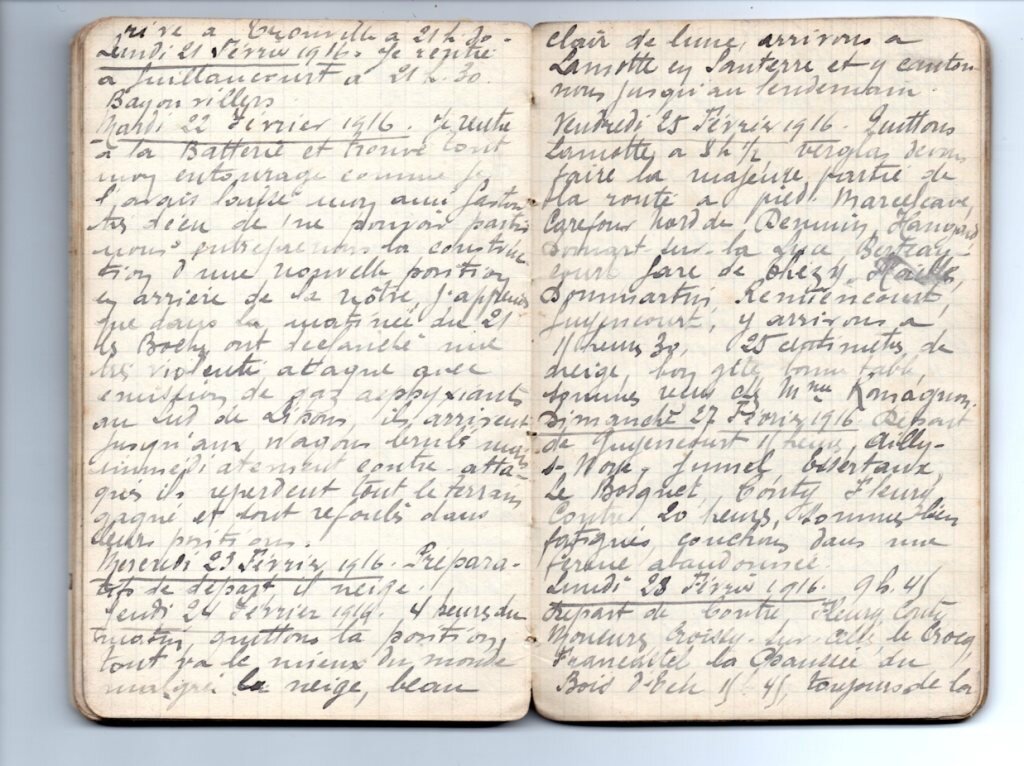 rive a Trouville a 21 h. 30.
Lundi 21 Février 1916. Je rentre
a Guillaucourt a 21 h. 30.
Bayonvillers
Mardi 22 Février 1916. Je rentre
a la Batterie et trouve tout
mon entourage comme je
l'avais laissé mon ami
très déçu de ne pouvoir partir
nous entreprenons la construc
tion d'une nouvelle position
en arrière de la nôtre, j'apprends
que dans la matinée du 21
les Boches ont declanché une
très violente attaque avec
emission de gaz asphyxiants
au sud de Lihons, ils arrivent
jusqu'aux wagons brulés mais
immediatement contre atta-
qués ils reperdent tout le terrain
gagné et sont refoulés dans
leurs positions.
Mercredi 23 Février 1916. Prepara-
tifs de départ, il neige.
Jeudi 24 Février 1916. 4 heures du
matin, quittons la position,
tout va le mieux du monde
malgré la neige, beau
clair de lune, arrivons a
Lamotte en Santerre et y canton
nons jusqu'au lendemain.
Vendredi 25 Février 1916. Quittons
Lamotte a 8 h 1/2 verglas devons
faire la majeure partie de
la route a pied. Marcelcave,
Carefour Nord de Demuin, Hangard
Domart sur la Luce Berteau-
court gare de Thezy, Hailles,
Dommartin, Remiencourt,
Guyencourt, y arrivons a
15 heures 30. 25 centimètres de
neige, bon gîte, bonne table,
sommes reçus chez Mme Romagnon.
Dimanche 27 Février 1916. Depart
de Guyencourt 11 heures, Ailly-
s- Noye, Jumel,
Le Bosquet, Conty Fleury
Contre 20 heures, sommes bien
fatigués, couchons dans une
ferme abandonnée.
Lundi 28 Février 1916. 9 h. 45
Depart de Contre Fleury, Conty
Monsures Croissy-sur-Celle, le Crocq,
Francastel la Chaussée du
Bois d'Ecu 15 h 45, toujours de la